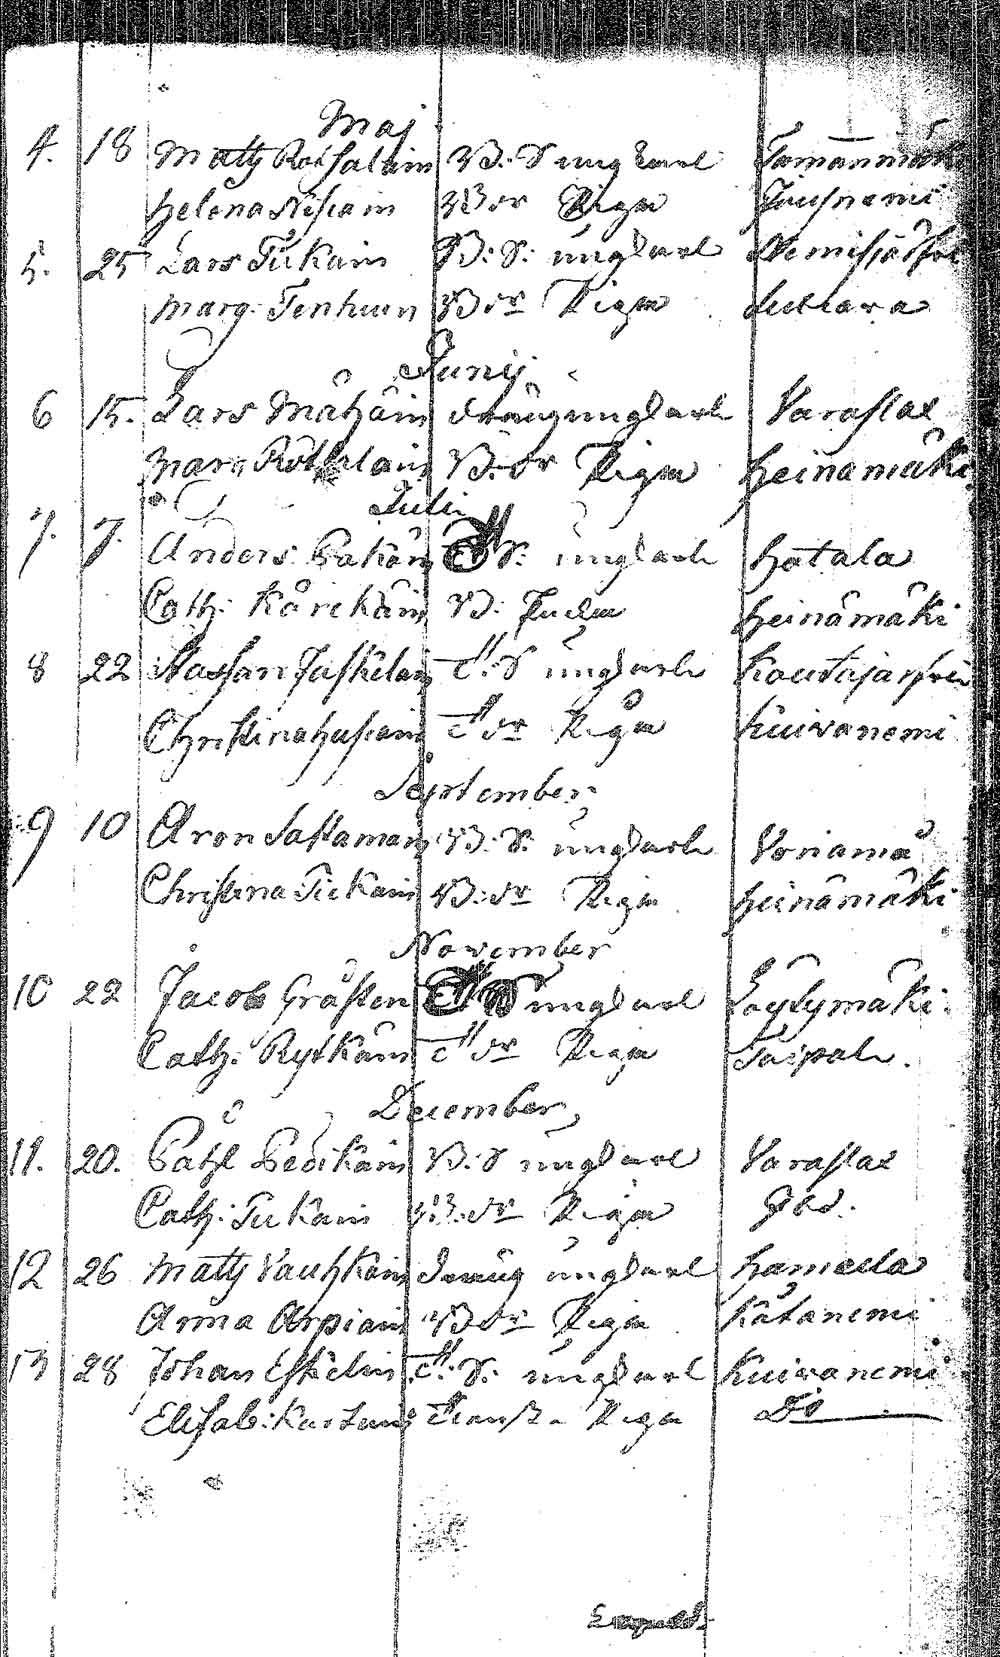 Maj
4. 18 Matts Rossalain B. S ungkarl Tamanmäki
Helena Niskain B dr Piga Jousnemi
5. 25 Lars Tickain B. S. ungkarl
Marg. Tenhuin B dr Piga
Junij
6 15. Lars Mähöin dräng ungkarl Varaslax
Marg. B. dr Piga Heinämäki
Julii
7. 7. Anders Pakäin S. ungkarl Hatala
Cath. Kärckäin B. Enka Heinämäki
8 22 Staffan Jaskelain C. S ungkarl Koutajärfvi
Christina Huskain C dr Piga Kuivanemi
September
9 10 Aron Sastamoin B. S. ungkarl Vonamä
Christina Tickain B. dr Piga Heinämäki
November
10 22 Jacob Gråsten S ungkarl Löytymäki.
Cath. Rytkäin C dr Piga Taipale.
December
11. 20. Påhl Pedikäin B. S ungkarl Varaslax
Cath. Tickain B. dr Piga ibd.
12 26 Matts Vauhkoin dräng ungkarl Hamula
Anna Arpiain B dr Piga Kätänemi
13 28 Johan Eskelin C. S. ungkarl Kuivanemi
Elisab. Piga Do